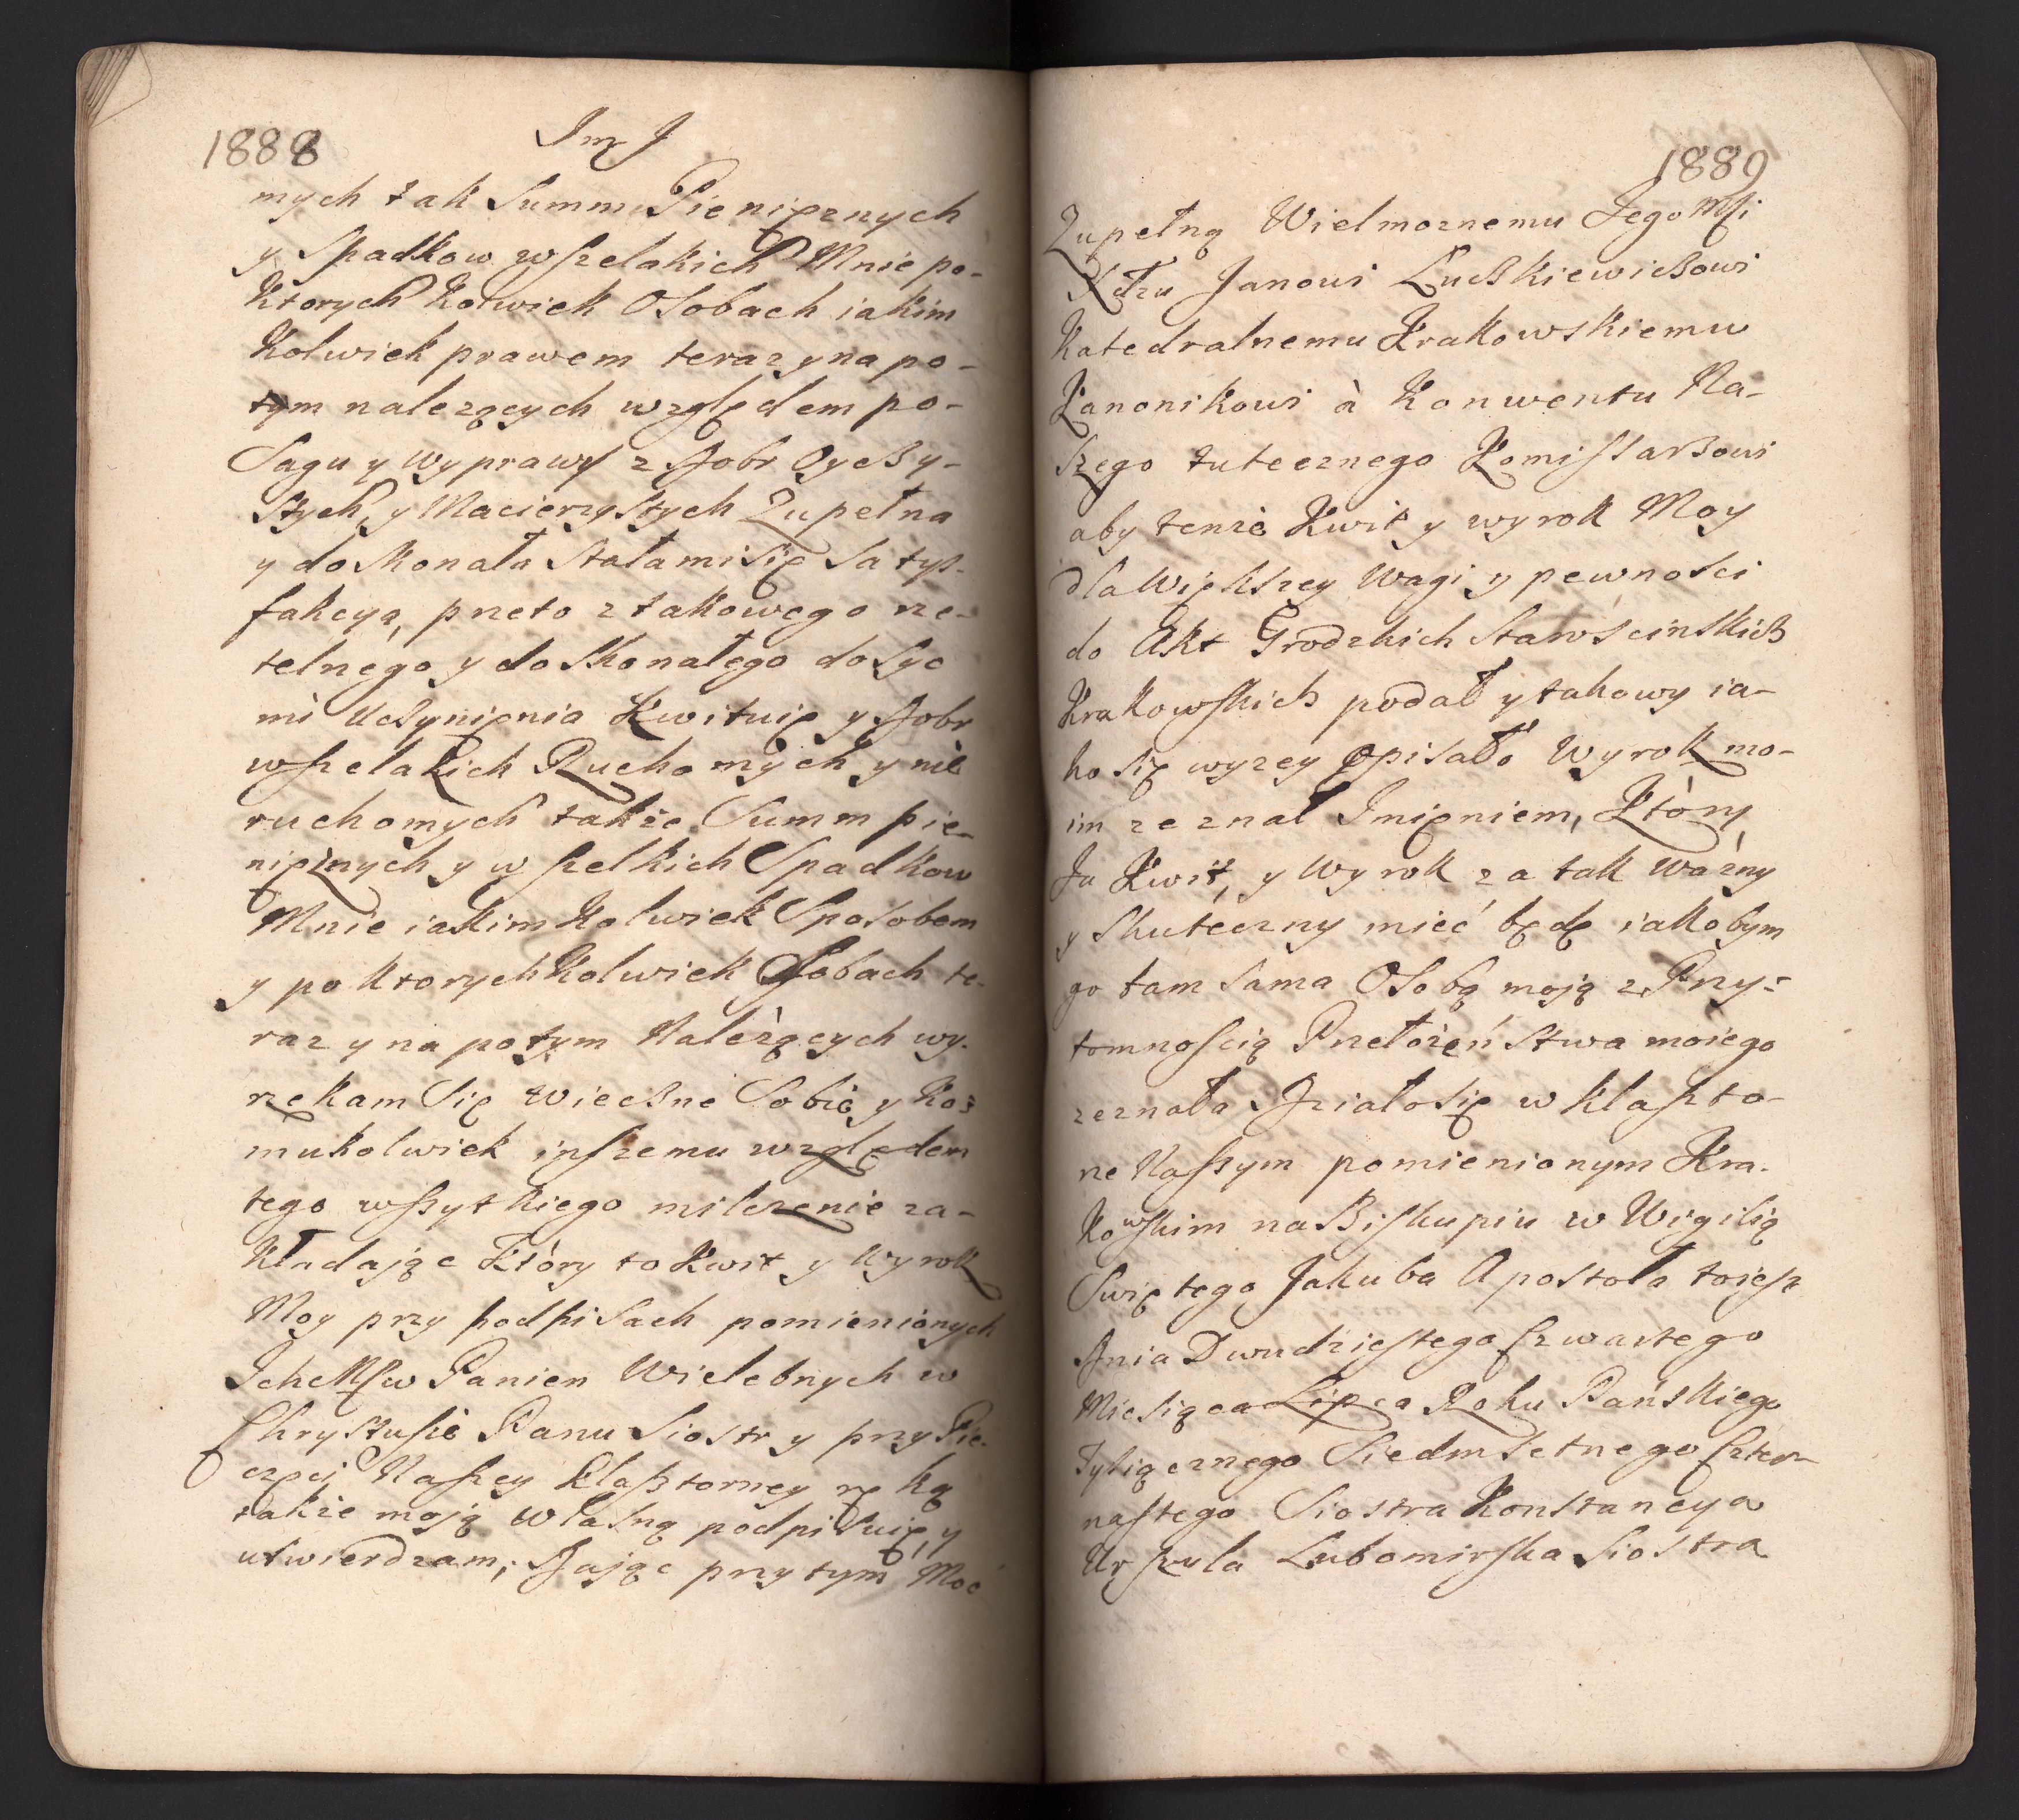 1888
Im J
mych tak Summ Pienięznych
y Spadkow wszelakich Mnie po-
ktorych kolwiek Osobach iakim
kolwiek prawem teraz y na po-
tym nalezących względem po-
sagu y wyprawy z Dobr Oyczy-
stych, y Macierzystych Zupełna
y doskonała stała mi się satys-
fakcya, przeto z takowego rze-
telnego y doskonałego dosyc
mi uczynienia Kwituię y Dobr
wszelakich Ruchomych y nie
ruchomych także Summ pie-
niężnych y wszelkich Spadkow
Mnie iakim kolwiek Sposobem
y po ktorychkolwiek Osobach te-
raz y na potym Należących wy-
rzekam Się wiecznè Sobie y ko-
mukolwiek inszemu względem
tego wszytkiego milczenie za-
kładając Który to Kwit y Wyrok
Moy przy podpisach pomienionych
Ichmsw Panien Wielebnych w
Chrystusie Panu Siostr y przy Pie-
częci Naszey klasztorney ręką
także moją własną podpisuię, y
utwierdzam, Dając przy tym Moc
1889
Zupełną Wielmoznemu Jego Msi
Xdzu Janowi Luczkiewiczowi
Katedralnemu Krakowskiemu
Kanonikowi à Konwentu Na-
szego tutecznego Komissarzowi
aby tenże Kwit y wyrok Moy
dla Większey Wagi y pewnosci
do Akt Grodzkich Starościnskich
Krakowskich podał y takowy ia-
ko się wyzey opisało Wyrok mo-
im zeznał Imięniem, Ktòry
Ja Kwit, y Wyrok za tak ważny
y skuteczny mieć będę iakobym
go tam sama Osobą moją z Przy-
tomnoscią Przełożeństwa moiego
zeznała Działo się w klaszto-
rze Naszym pomienionym Kra-
kowskim na Biskupiu w Wigilią
Swiętego Jakuba Apostoła toiest
Dnia Dwudziestego Czwartego
Miesiąca Lipca Roku Pańskiego
Tysiącznego Siedmsetnego Czter-
nastego Siostra Konstancya
Urszula Lubomirska Siostra